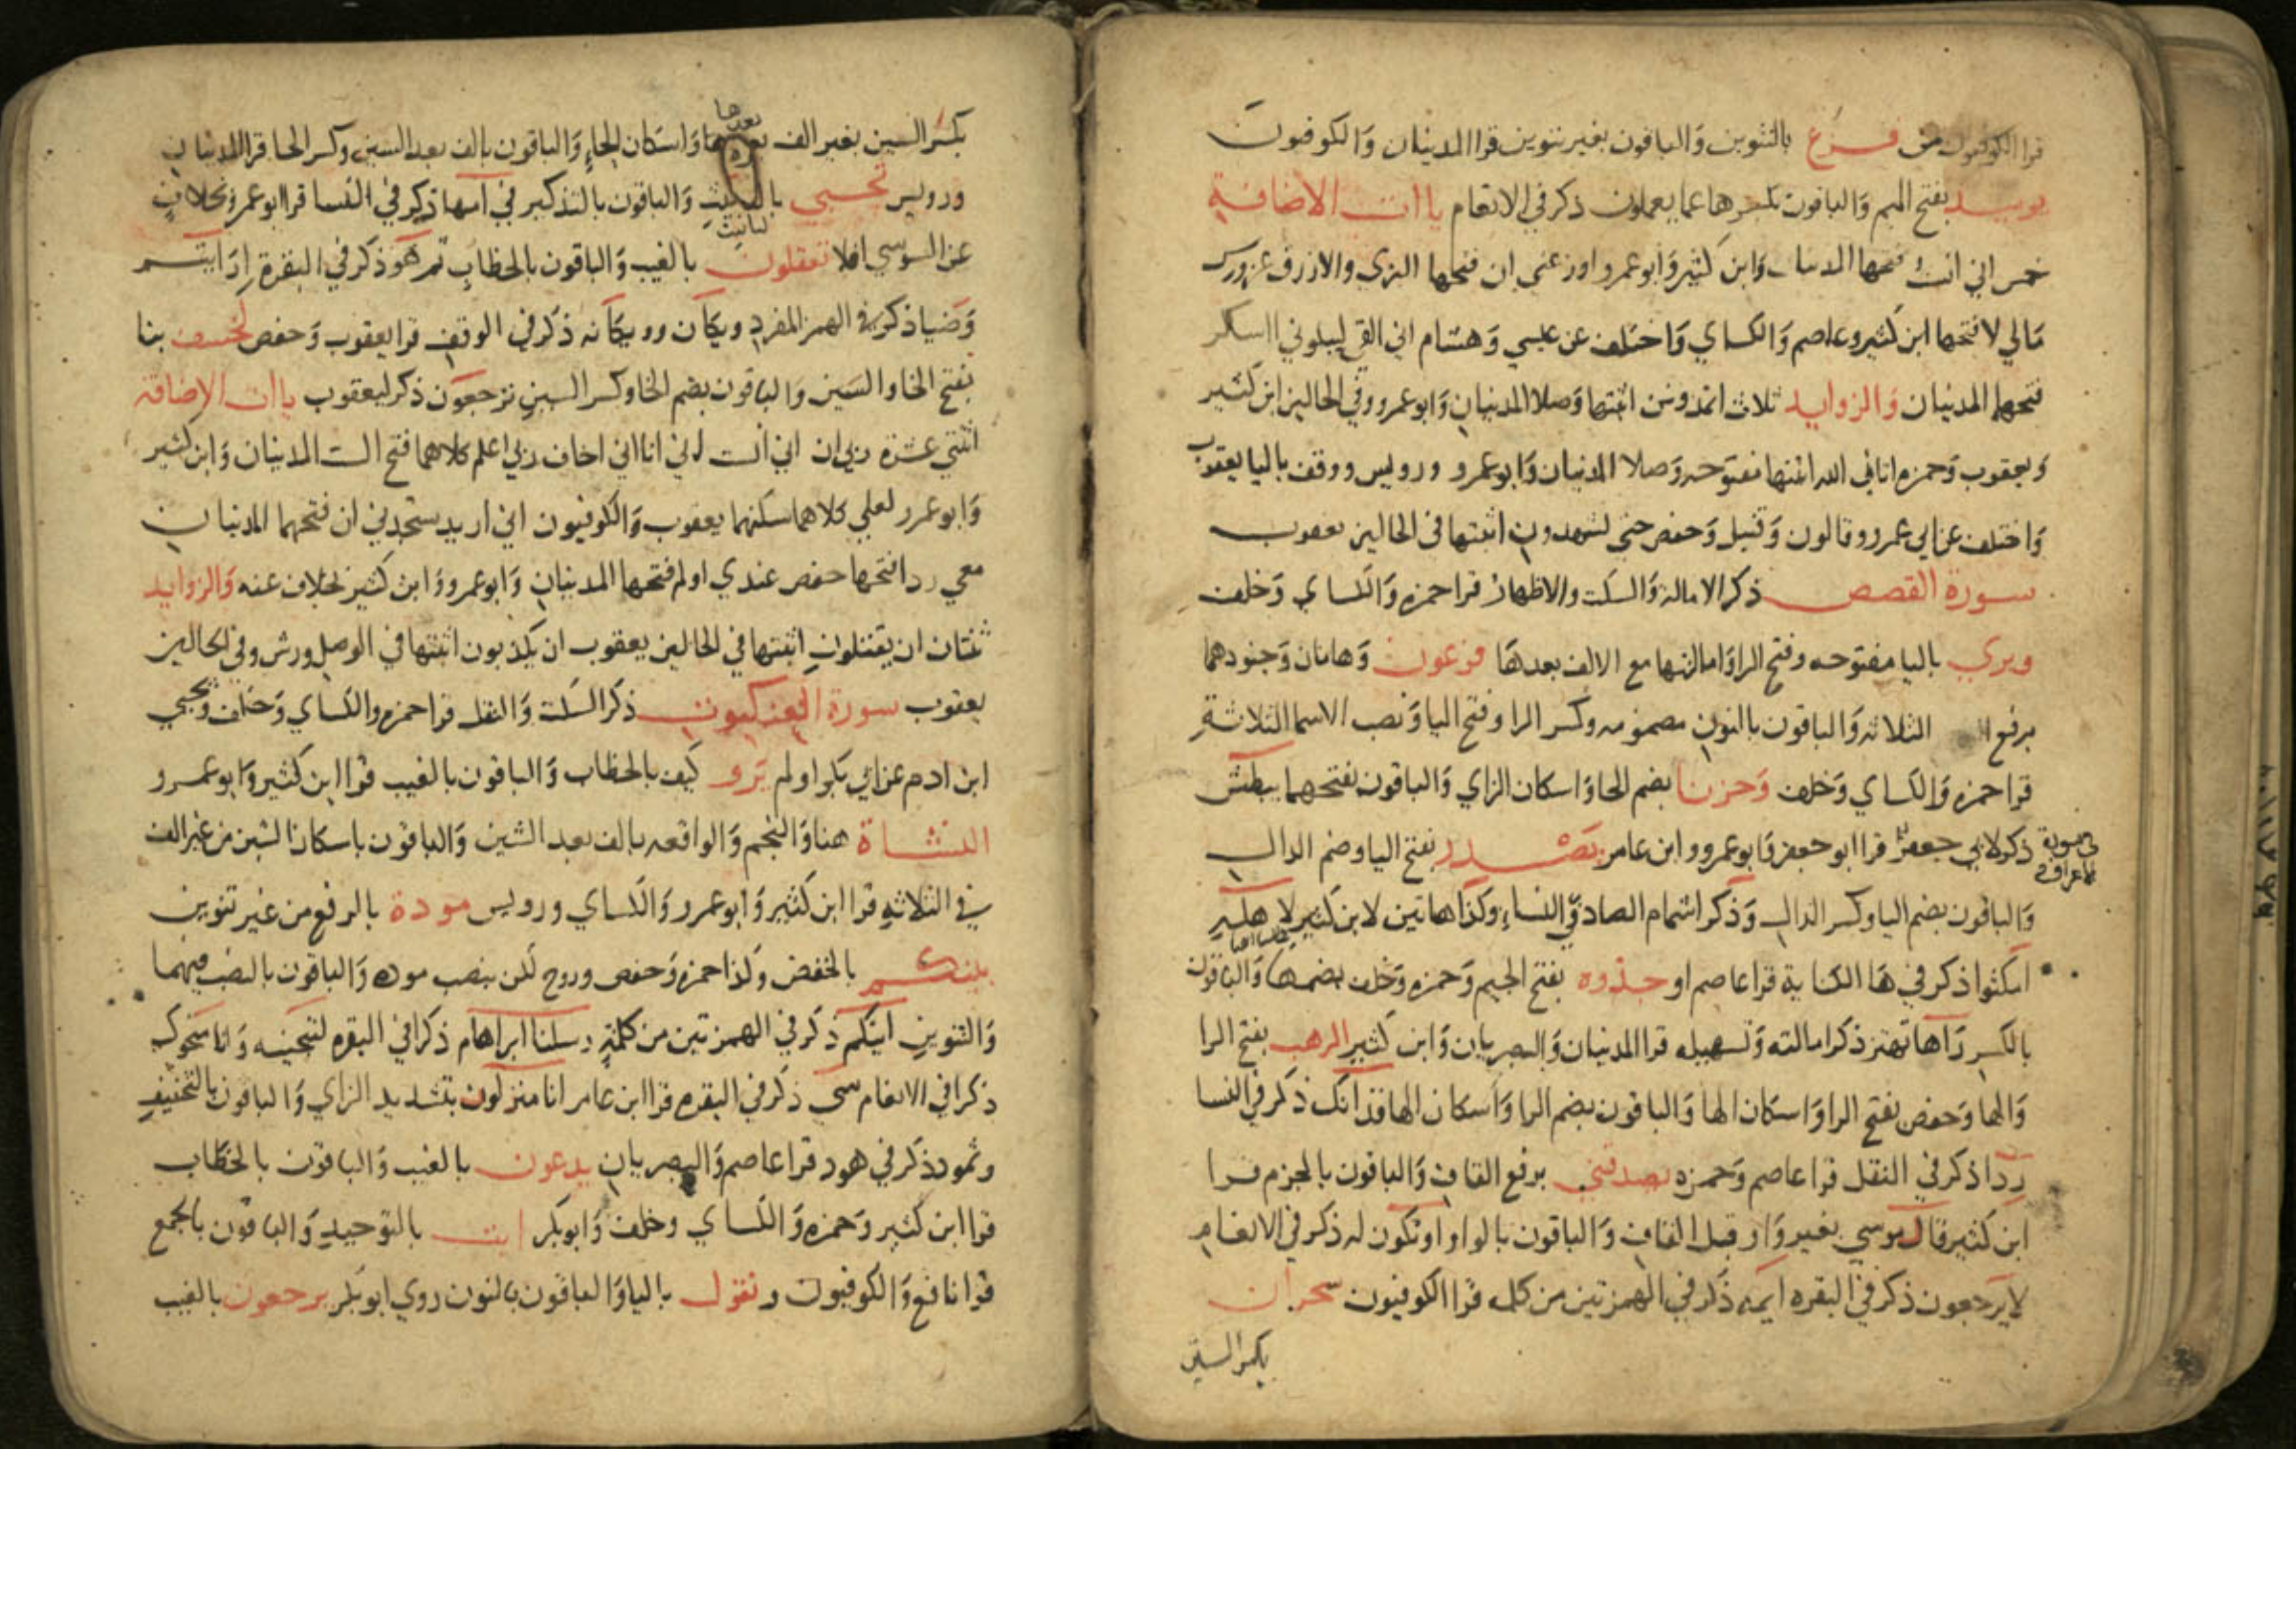 قرا الكوفيون من فزع بالتنوين والباقون بغير تنوين قرا المدنيان والكوفيون
يوميذ بفتح الميم والباقون بكسرها عما يعملون ذكر في الانعام ياات الاضافة
خمس اني انست فتحها المدنيان وابن كثير وابو عمرو اوزعني ان فتحها البزي والازرق عن ورش
مالي لا فتحها ابن كثير وعاصم والكساي واختلف عن عيسي وهشام اني القي ليبلوني ااشكر
فتحهما المدنيان والزوايد ثلاث اتمدونن اثبتها وصلا المدنيان وابو عمرو وفي الحالين ابن كثير
ويعقوب وحمزه اتاني الله اثبتها مفتوحه وصلا المدنيان وابو عمرو ورويس ووقف باليا يعقوب
واختلف عن ابي عمرو وقالون وقنبل وحفص حتى تشهدون اثبتها في الحالين يعقوب
سورة القصص ذكر الامالة والسكت والاظهار قرا حمزه والكساي وخلف
ويري باليا مفتوحه وفتح الرا وامالتها مع الالف بعدها فرعون وهامان وجنودهما
برفع الثلاثه والباقون بالنون مضمومه وكسر الرا وفتح اليا ونصب الاسما الثلاثة
قرا حمزه والكساي وخلف وحزنا بضم الحا واسكان الزاي والباقون بفتحهما يبطش
ذكر لابي جعفر قرا ابو جعفر وابو عمرو وابن عامر يصدر بفتح اليا وضم الدال
في سورة الاعراف
والباقون بضم اليا وكسر الدال وذكر اشمام الصاد في النساء وكذا هاتين لابن كثير لاهله
امكثوا ذكر في ها الكناية قرا عاصم او جذوه بفتح الجيم وحمزه وخلف بضمها والباقون
بالكسر رآها تهتز ذكر امالته وتسهيله قرا المدنيان والبصريان وابن كثير الرهب بفتح الرا
والها وحفص بفتح الرا واسكان الها والباقون بضم الرا واسكان الها فذانك ذكر في النسا
ردا ذكر في النقل قرا عاصم وحمزه يصدقني برفع القاف والباقون بالجزم قرا
ابن كثير قال موسي بغير واو قبل القاف والباقون بالواو او تكون له ذكر في الانعام
لا يرجعون ذكر في البقره ايمه ذكر في الهمزتين من كلمه قرا الكوفيون سحران
بكسر السين
بكسر السين بغير الف بعدها واسكان الحاء والباقون بالف بعد السين وكسر الحا قرا المدنيان
بعدها
ورويس تجبي بالتانيث والباقون بالتذكير في امها ذكر في النسا قرا ابو عمرو بخلاف
تانيث
عن السوسي افلا تعقلون بالغيب والباقون بالخطاب ثم هو ذكر في البقرة ارايتم
وضيا ذكر في الهمز المفرد ويكان وويكانه ذكر في الوقف قرا يعقوب وحفص لخسف بنا
بفتح الخا والسين والباقون بضم الخا وكسر السين ترجعون ذكر ليعقوب ياات الاضافة
اثنتي عشرة ربي ان اني انست اني انا اني اخاف ربي اعلم كلاهما فتح الست المدنيان وابن كثير
وابو عمرو لعلي كلاهما سكنهما يعقوب والكوفيون اني اريد ستجدني ان فتحهما المدنيان
معي ردا فتحها حفص عندي اولم فتحها المدنيان وابو عمرو وابن كثير بخلاف عنه والزوايد
ثنتان ان يقتلون اثبتها في الحالين يعقوب ان يكذبون اثبتها في الوصل ورش وفي الحالين
يعقوب سورة العنكبوت ذكر السكت والنقل قرا حمزه والكساي وخلف ويحيي
ابن ادم عن ابي بكر اولم يرو كيف بالخطاب والباقون بالغيب قرا ابن كثير وابو عمرو
النشاة هنا والنجم والواقعه بالف بعد الشين والباقون باسكان الشين من غير الف
في الثلاثه قرا ابن كثير وابو عمرو والكساي ورويس مودة بالرفع من غير تنوين
بينكم بالخفض وكذا حمزه وحفص وروح لكن بنصب موده والباقون بالنصب فيهما
والتنوين اينكم ذكر في الهمزتين من كلمة رسلنا ابراهام ذكرا في البقره لننجينه وانا منجوك
ذكرا في الانعام سي ذكر في البقره قرا ابن عامر انا منزلون بتشديد الزاي والباقون بالتخفيف
وثمود ذكر في هود قرا عاصم والبصريان يدعون بالغيب والباقون بالخطاب
قرا ابن كثير وحمزه والكساي وخلف وابوبكر ايت بالتوحيد والباقون بالجمع
قرا نافع والكوفيون ونقول باليا والباقون بالنون روي ابو بكر يرجعون بالغيب